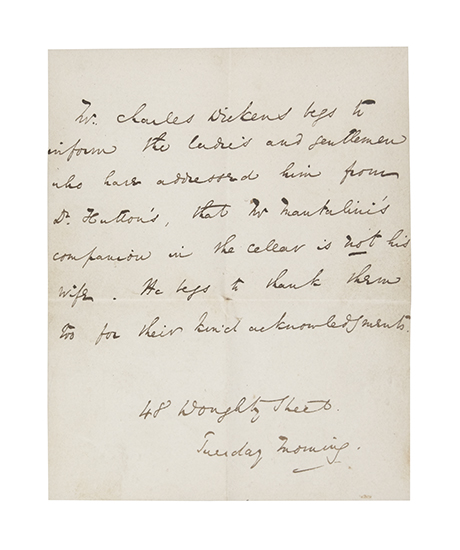 Mr. Charles Dickens begs to
inform the ladies and gentlemen
who have addressed him from
Dr. Hutton's, that Mr Mantalini's
companion in the cellar is not his
wife. He begs to thank them
too for their kind acknowledgments.
48 Doughty Street.
Tuesday Morning.